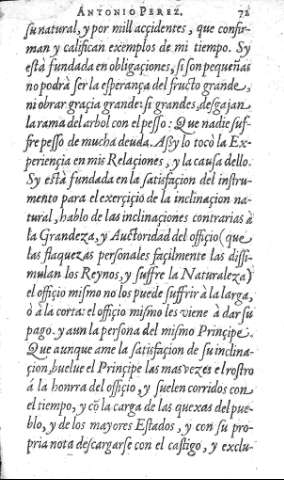 ANTONIO PEREZ. 72
ſu natural, y por mill accidentes, que confir-
man y califican exemplos de mi tiempo. Sy
eſtà fundada en obligaçiones, ſi ſon pequeñas
no podrà ſer la eſperança del fructo grande,
ni obrar graçia grande: ſi grandes, deſgajan
la rama del arbol con el peſſo: Que nadie ſuf-
fre peſſo de mucha deuda. Aſſy lo tocò la Ex-
periençia en mis Relaçiones, y la cauſa dello.
Sy eſtà fundada en la ſatisfaçion del inſtru-
mento para el exerçiçio de la inclinaçion na-
tural, hablo de las inclinaçiones contrarias à
la Grandeza, y Auctoridad del offiçio (que
las flaquezas perſonales façilmente las diſſi-
mulan los Reynos, y ſuffre la Naturaleza)
el offiçio miſmo no los puede ſuffrir à la larga,
ò à la corta: el offiçio miſmo les viene à dar ſu
pago. y aun la perſona del miſmo Prinçipe.
Que aunque ame la ſatisfaçion de ſu inclina-
çion, buelue el Prinçipe las mas vezes el roſtro
à la honrra del offiçio, y ſuelen corridos con
el tiempo, y cõ la carga de las quexas del pue-
blo, y de los mayores Eſtados, y con ſu pro-
pria nota deſcargarſe con el caſtigo, y exclu-